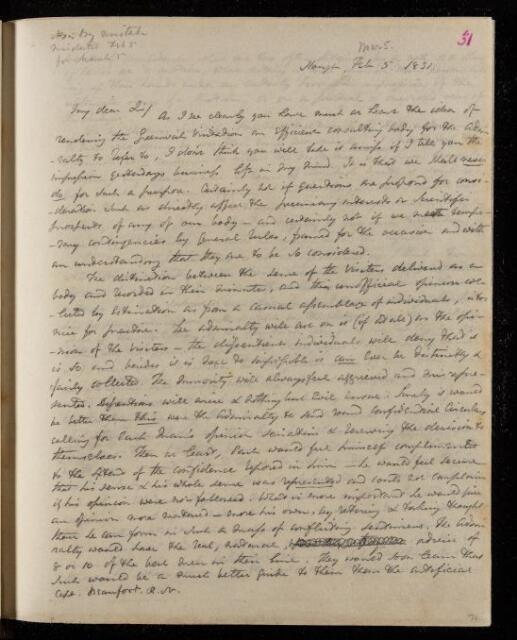 N.B. By mistake
misdated Feb 5
for March 5
51
Mar. 5.
Slough, Feb 5 1831
My dear Sir
As I see clearly you have much at heart the idea of
rendering the Greenwich Visitation an efficient consulting body for the Admi-
-ralty to refer to, I don't think you will take it amiss if I tell you the
impression yesterday's business left on my mind. It is that we shall never
do for such a purpose. Certainly not if questions are proposed for consi-
-deration such as directly affect the pecuniary interests or scientific
prospects of any of our body – and certainly not if we meet tempo-
-rary contingencies by General rules, framed for the occasion and with
an understanding that they are to be so considered.
The distinction between the sense of the Visitors delivered as a
body and recorded in their minutes, and the unofficial opinion col-
-lected by from a casual assemblage of individuals, is too
nice for practice. The Admiralty will act on it (if at all) as the opin-
-ion of the Visitors – the dissentient individuals will deny that it
is so and besides it is next to impossible it can ever be distinctly &
fairly collected. The minority will always feel aggrieved and misrepre-
sented. Dissentions will arise & nothing but evil ensue. Surely it would
be better than this were the Admiralty to send round confidential Circulars
calling for each man's opinion seriatim & reserving the decision to
themselves. Then at least, each would feel himself complimented
to the extent of the confidence reposed in him – he would feel secure
that his sense & his whole sense was represented and could not complain
if his opinion were not followed. What is more important he would give
an opinion more matured – more his own, by retiring & taking thought
than he can form in such a mass of conflicting sentiments. The Admi-
ralty would have the real, advice of
8 or 10 of the best men in their line. They would soon learn that
such would be a much better guide to them than the artificial
Capt. Beaufort. R.N.